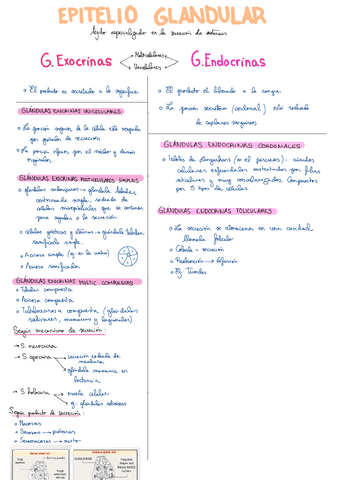 EPITELIO GLANDULAR
Tejido especializado en la secreción de sustancias
G. Exocrinas
Multicelulares
Unicelulares
G. Endocrinas
El producto es secretado a la superficie
GLÁNDULAS EXOCRINAS UNICELULARES
La porción apical de la célula está ocupada
por gránulos de secreción
La porción por el núcleo y demás
GLÁNDULAS EXOCRINAS MULTICELULARES SIMPLES
glándulas glándula tubular
rodeada de
células mioepiteliales que se contraen
para ayudar a la secreción
Células gástricas y glándula tubular
ramificada simple.
Acinosa simple (ej. en la uretra)
Acinosa ramificada
GLÁNDULAS EXOCRINAS MULTIC. COMPUESTAS
Tubular compuesta
Acinosa compuesta
Tubuloacinosa compuesta (glándulas
salivares, mamarias y lagrimales).
Según mecanismo de secreción:
S. merocrina
S. apocrina
secreción rodeada de
membrana
glándula mamaria en
lactancia
S. holocrina
muerte celular
ej: glándulas sebáceas
Según producto de secreción:
Mucosas
Serosas → proteínas
Seromucosas → mixto
El producto el liberado a la sangre
La porción secretora (cordonal) está rodeada
de capilares sanguíneos
GLÁNDULAS ENDOCRINAS CORDONALES
Islotes de Langerhans (en el páncreas): acúmulos
celulares esferoidales sustentados por fibras
reticulares y muy vascularizados. Compuestos
por 5 tipos de células.
GLÁNDULAS ENDOCRINAS FOLICULARES
La secreción se almacena en una cavidad
llamada folículo
Coloide → secreción
Ej: Tiroides